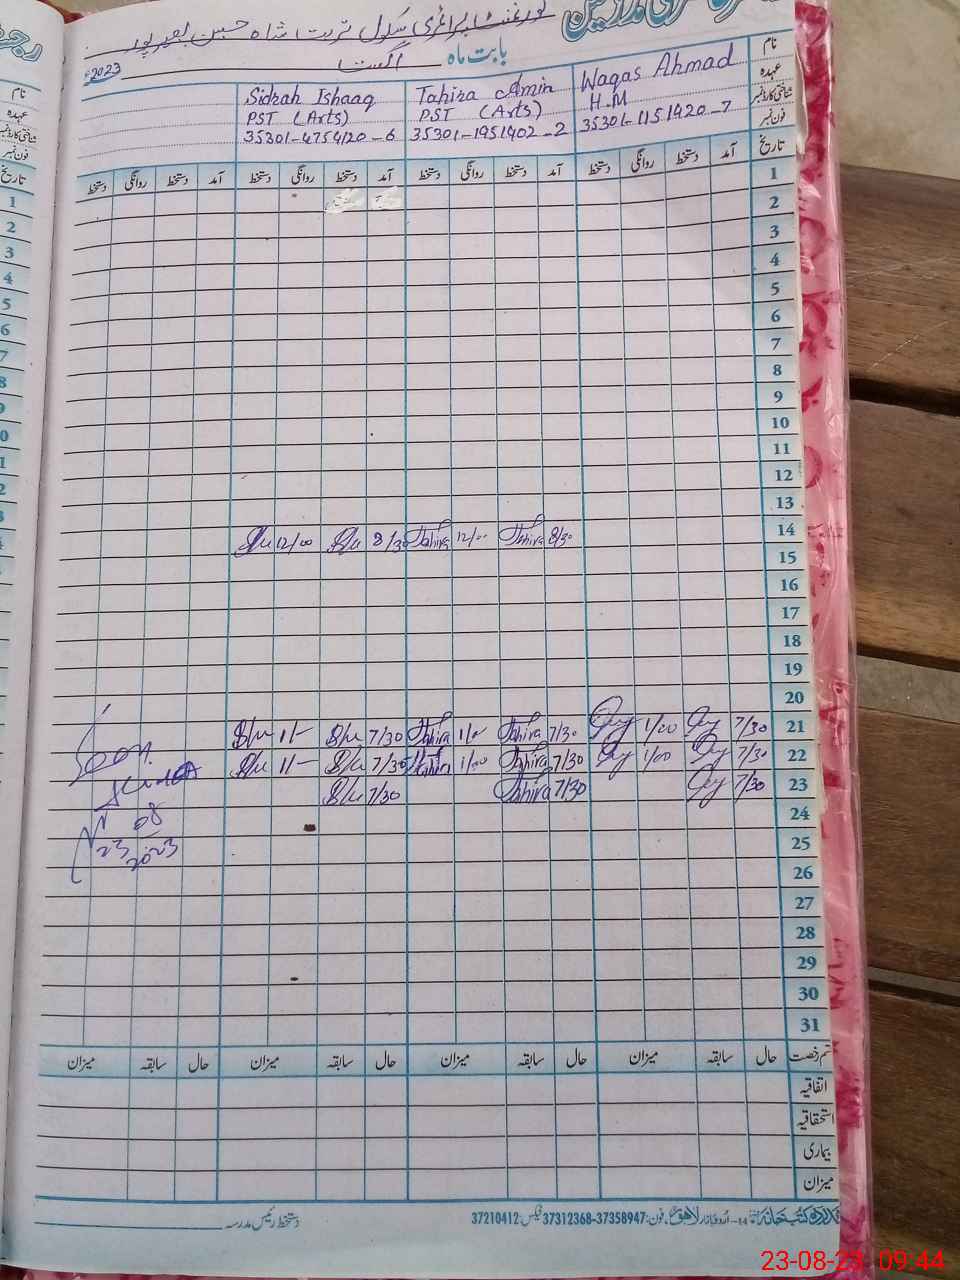 گورنمنٹ پرائمری سکول تربت شاہ حسین بصیرپور
بابت ماہ اگست 2023ء
نام Waqas Ahmad Tahira Amin Sidrah Ishaaq
عہدہ H.M PST (Arts) PST (Arts)
شناختی کارڈ نمبر 35301-1151920-7 35301-1951402-2 35301-4754120-6
فون نمبر
تاریخ آمد دستخط روانگی دستخط آمد دستخط روانگی دستخط آمد دستخط روانگی دستخط آمد دستخط روانگی دستخط
1
2
3
4
5
6
7
8
9
10
11
12
13
14 8/30 Tahira 12/00 Tahira 8/30 12/00
15
16
17
18
19
20
21 7/30 1/00 7/30 Tahira 1/0 Tahira 7/30 1/-
22 7/30 1/00 7/30 Tahira 1/00 Tahira 7/30 1/-
23 7/30 7/30 Tahira 7/30
24
25
26
27
28
29
30
31
23 08 2023
قسم رخصت حال سابقہ میزان حال سابقہ میزان حال سابقہ میزان حال سابقہ میزان
اتفاقیہ
استحقاقیہ
بیماری
میزان
14-اردو بازار لاہور، فون: 37358947-37312368 فیکس: 37210412
دستخط رئیس مدرسہ
23-08-23 09:44
نام
عہدہ
شناختی کارڈ نمبر
فون نمبر
تاریخ
1
2
3
4
5
6
7
8
9